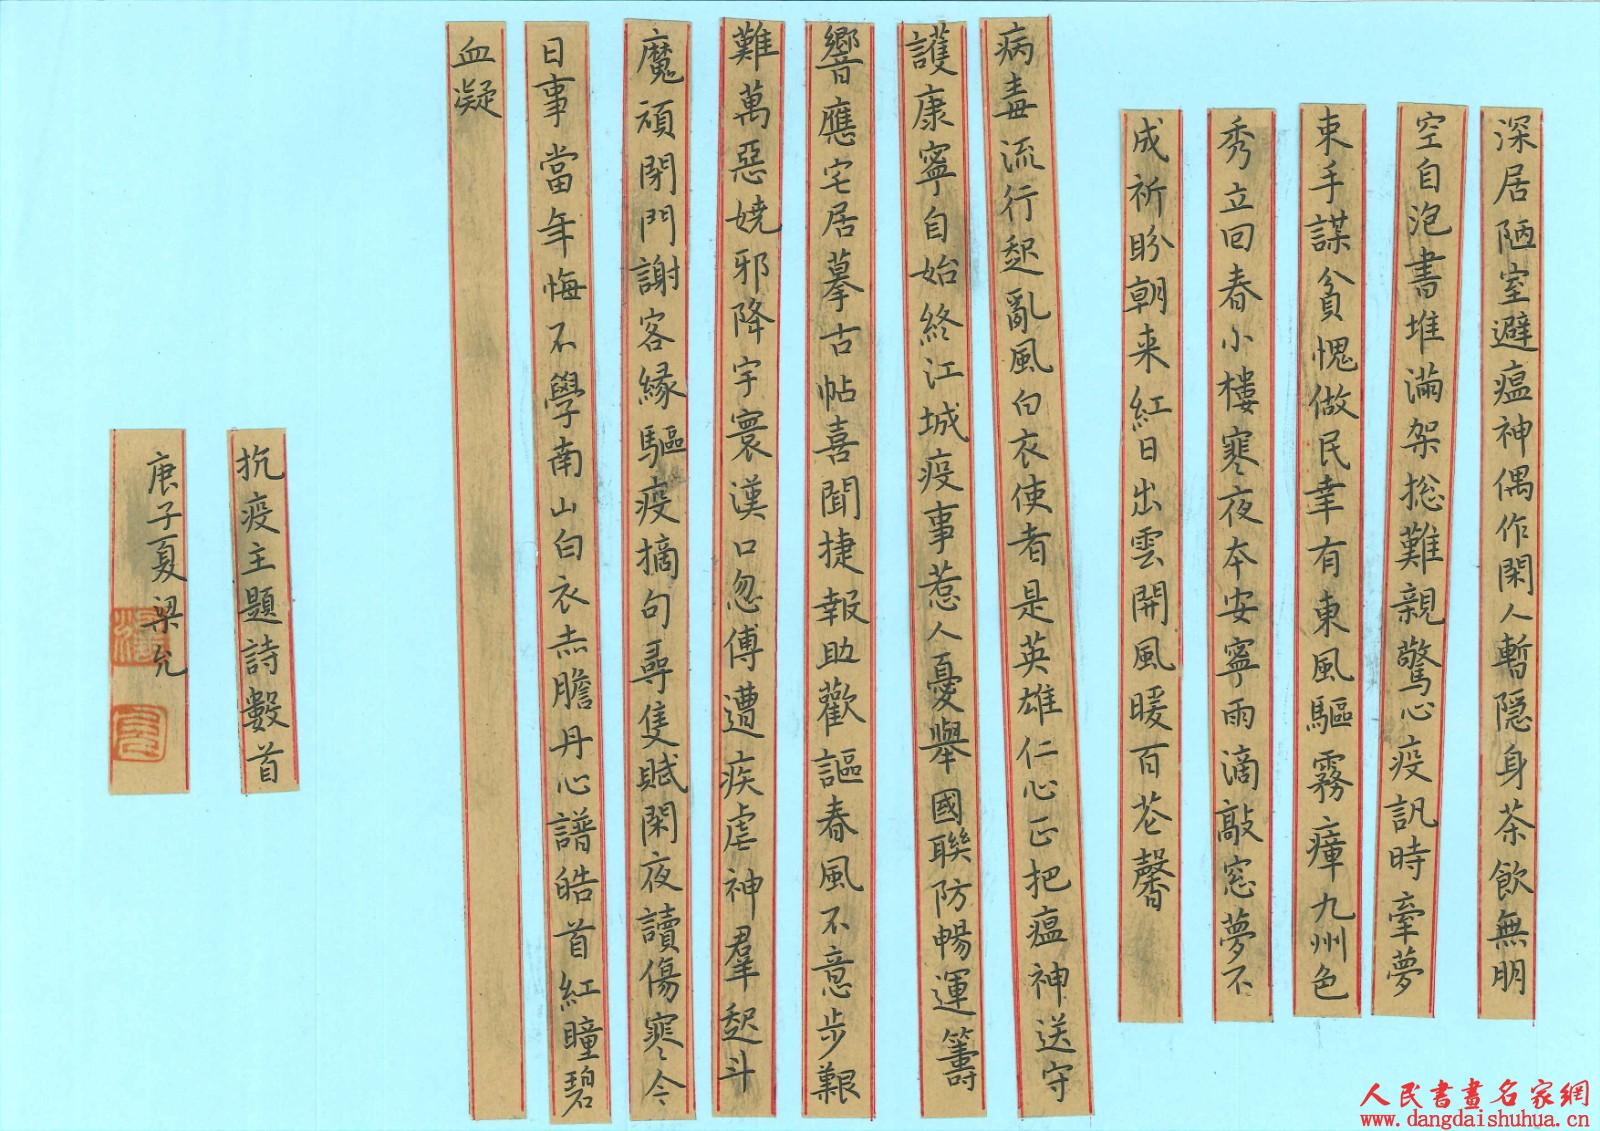 深居陋室避瘟神偶作閑人暫隱身茶飲無朋
空自泡書堆滿架総難親驚心疫訊時牽夢
束手謀貧愧做民幸有東風驅霧瘴九州色
秀立回春小樓寒夜夲安寧雨滴敲窓夢不
成祈盼朝来紅日出雲開風暖百花馨
病毒流行起亂風白衣使者是英雄仁心正把瘟神送守
護康寧自始終江城疫事惹人憂舉國聯防暢運籌
響應宅居摹古帖喜聞捷報助歡謳春風不意步艱
難萬惡嬈邪降宇寰漢口忽傅遭疾虐神羣起斗
魔頑閉門謝客緣驅疫摘句尋隻賦閑夜讀傷寒今
日事當年悔不學南山白衣赤膽丹心譜皓首紅瞳碧
血凝
抗疫主題詩數首
庚子夏梁允
人民書畫名家網
www.dangdaishuhua.cn